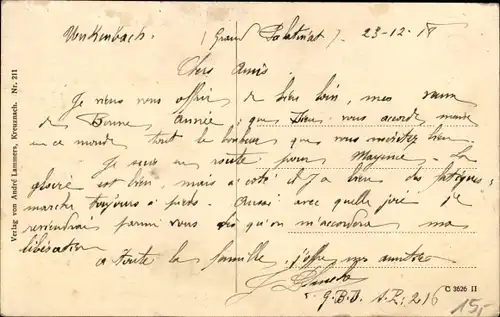 (Grand Palatinat). 23-12-18
Chers Amis
Je viens vous offrir de bien loin, mes vœux
de Bonne Année, que Dieu vous accorde
en ce monde tout le bonheur que vous méritez bien
Je suis en route pour Mayence. La
gloire est bien, mais à coté il y a bien des fatigues,
marche toujours à pieds. Aussi avec quelle joie je
reviendrai parmi vous dès qu'on m'accordera ma
libération
à toute la famille, j'offre mes amitiés
G.B.D. S.P. 216
15,-
Verlag von André Lammers, Kreuznach. Nr. 211
C 3626 II